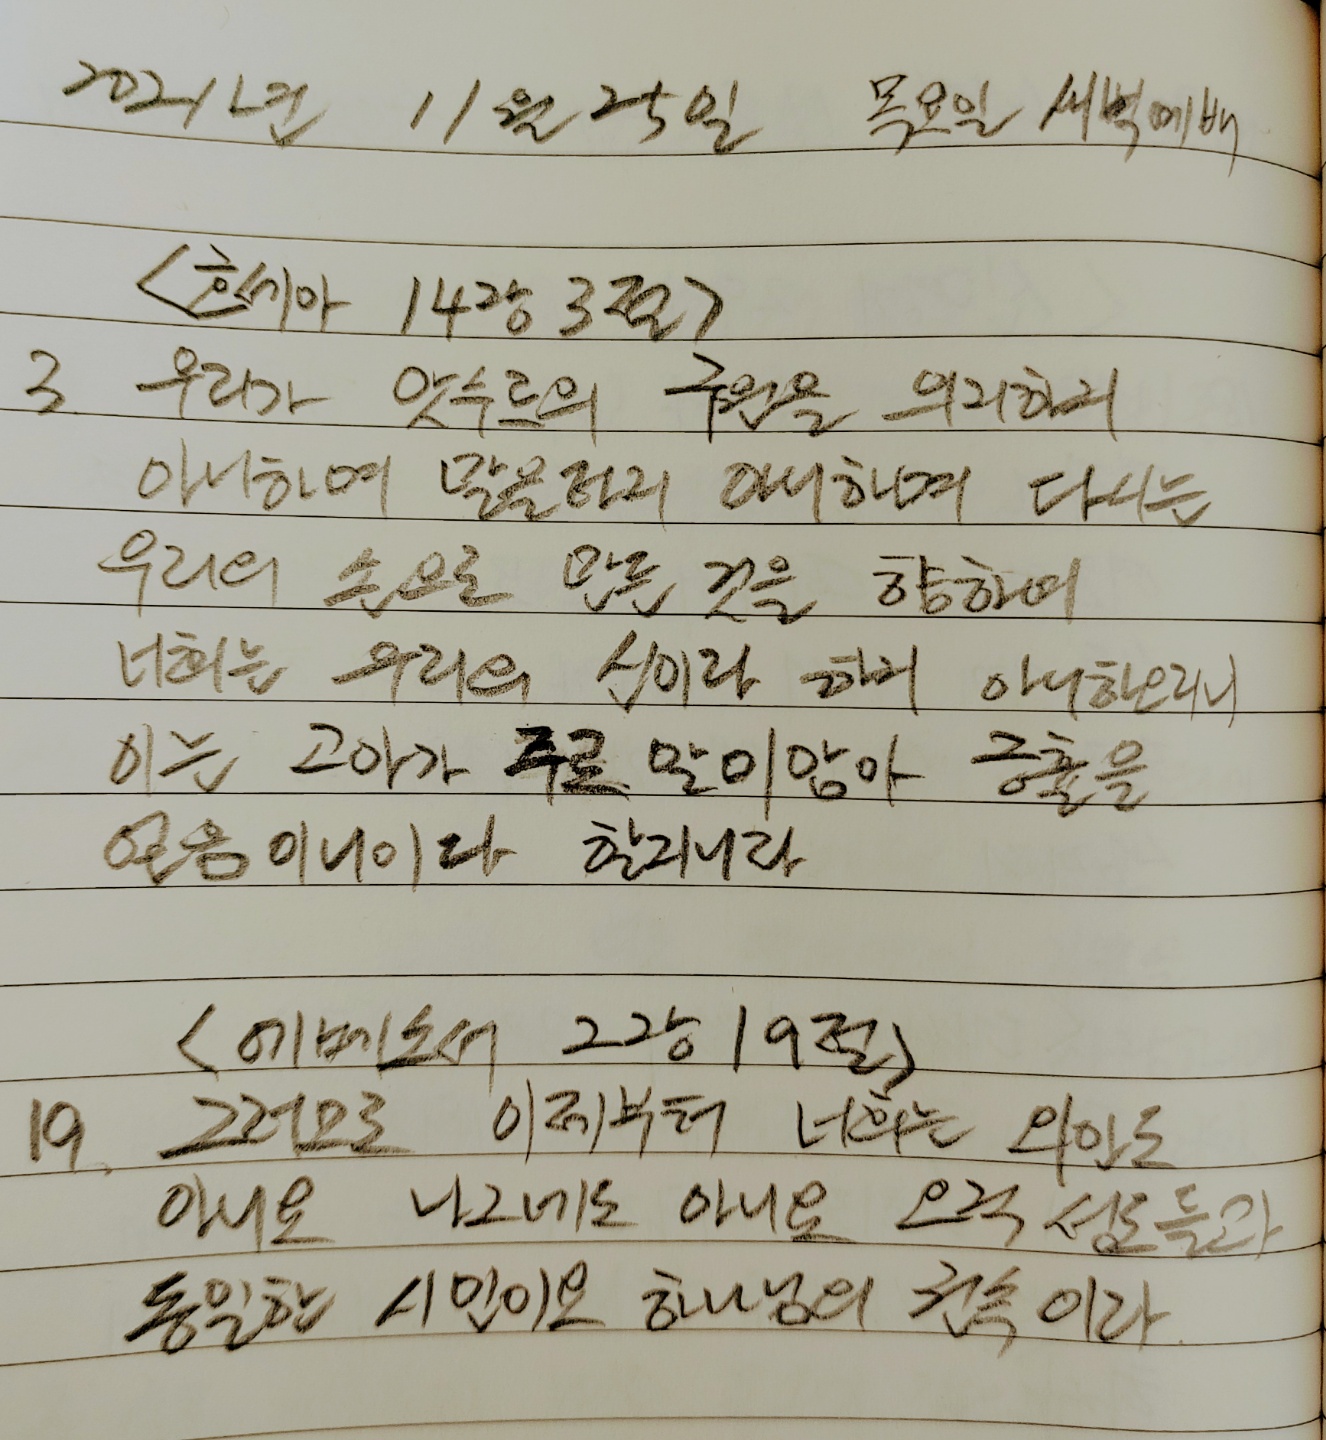 2021년 11월 25일 목요일 새벽예배
<호세아 14장 3절>
3 우리가 앗수르의 구원을 의지하지
아니하며 말을 타지 아니하며 다시는
우리의 손으로 만든 것을 향하여
너희는 우리의 신이라 하지 아니하오리니
이는 고아가 주로 말미암아 긍휼을
얻음이니이다 할지니라
<에베소서 2장 19절>
19. 그러므로 이제부터 너희는 외인도
아니요 나그네도 아니요 오직 성도들과
동일한 시민이요 하나님의 권속이라.